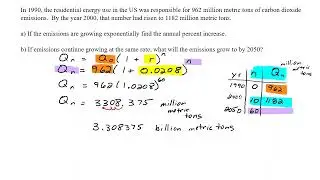 In 1990, the residential energy use in the US was responsible for 962 million metric tons of carbon dioxide
emissions. By the year 2000, that number had risen to 1182 million metric tons.
a) If the emissions are growing exponentially find the annual percent increase.
b) If emissions continue growing at the same rate, what will the emissions grow to by 2050?
Qn = Q0(1 + r)^n
Qn = 962(1 + 0.0208)^n
Qn = 962(1.0208)^60
Qn = 3308.375 million metric tons
3.308375 billion metric tons
million metric tons
yr n Qn
1990 0 962
2000 10 1182
2050 60